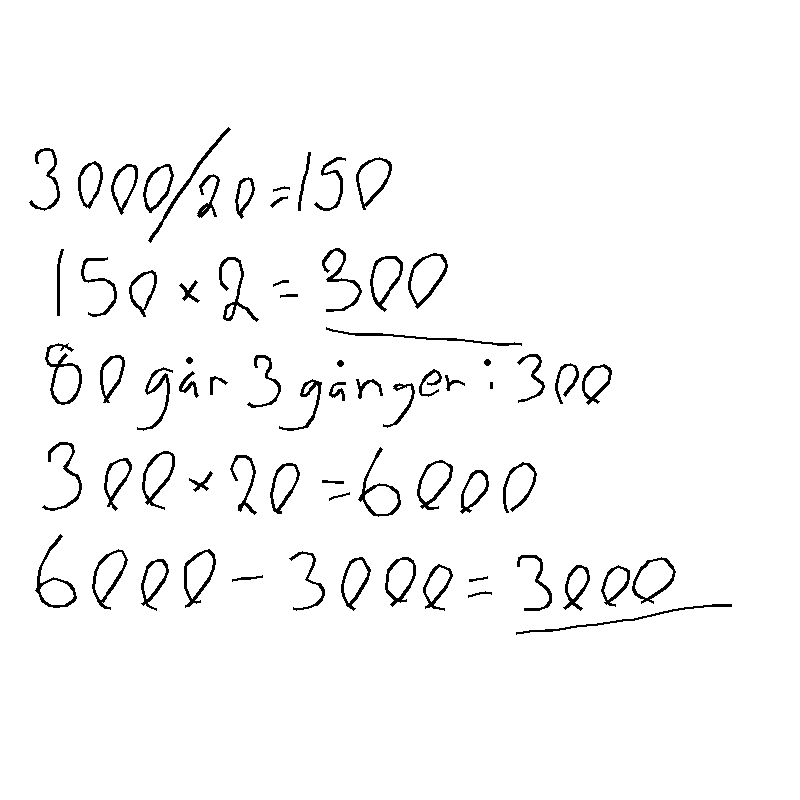 3000/20=150
150×2=300
80 går 3 gånger i 300
300×20=6000
6000-3000=3000